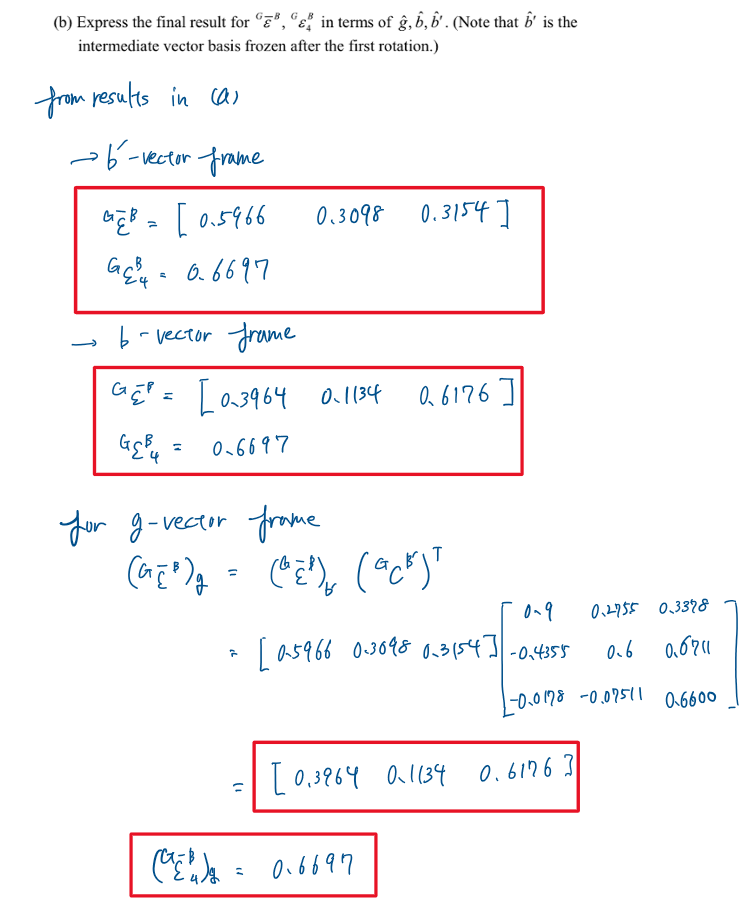 (b) Express the final result for ᴳε̄ᴮ, ᴳε₄ᴮ in terms of ĝ, b̂, b̂′. (Note that b̂′ is the
intermediate vector basis frozen after the first rotation.)
from results in (a)
→ b′-vector frame
ᴳε̄ᴮ = [ 0.5966 0.3098 0.3154 ]
ᴳε₄ᴮ = 0.6697
→ b-vector frame
ᴳε̄ᴮ = [ 0.3964 0.1134 0.6176 ]
ᴳε₄ᴮ = 0.6697
for g-vector frame
(ᴳε̄ᴮ)g = (ᴳε̄ᴮ)b′ (ᴳCᴮ′)ᵀ
= [ 0.5966 0.3098 0.3154 ] [ 0.9 0.2755 0.3378
-0.4355 0.6 0.6711
-0.0178 -0.07511 0.6600 ]
= [ 0.3964 0.1134 0.6176 ]
(ᴳε̄₄ᴮ)g = 0.6697